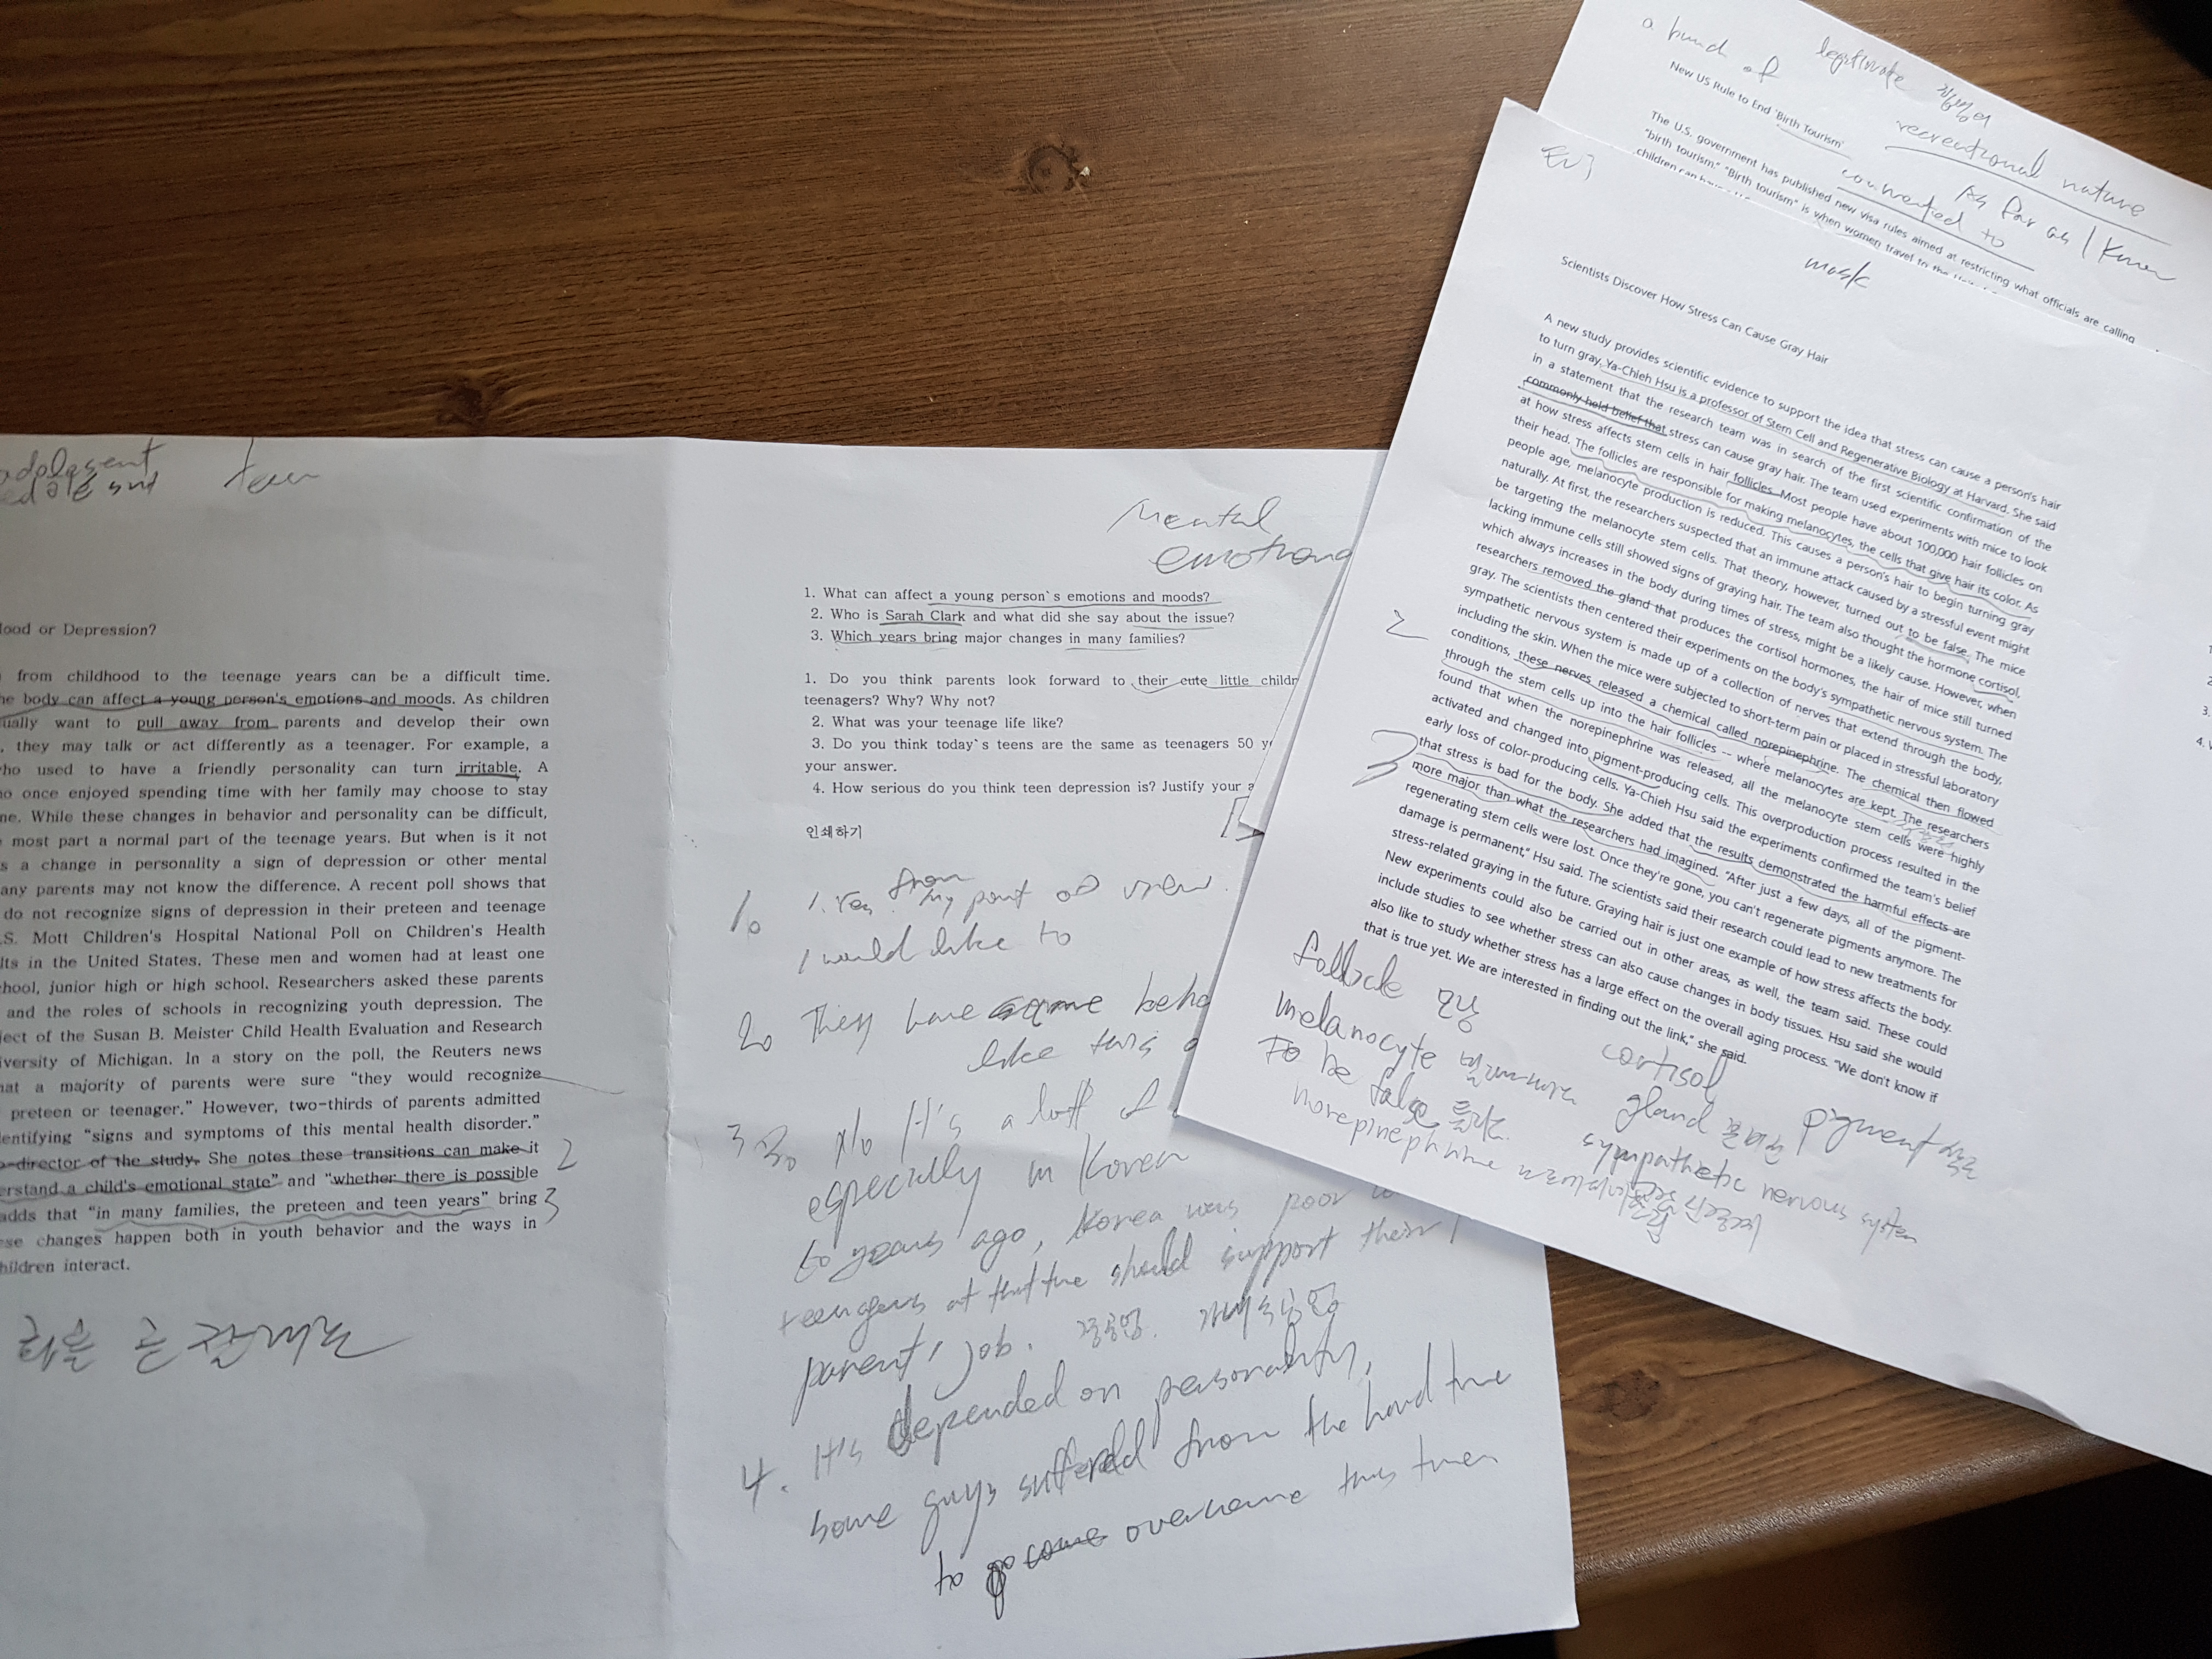 adolesent
teen
Mood or Depression?
from childhood to the teenage years can be a difficult time.
he body can affect a young person's emotions and moods. As children
ually want to pull away from parents and develop their own
, they may talk or act differently as a teenager. For example, a
ho used to have a friendly personality can turn irritable. A
o once enjoyed spending time with her family may choose to stay
ne. While these changes in behavior and personality can be difficult,
most part a normal part of the teenage years. But when is it not
s a change in personality a sign of depression or other mental
any parents may not know the difference. A recent poll shows that
do not recognize signs of depression in their preteen and teenage
.S. Mott Children's Hospital National Poll on Children's Health
lts in the United States. These men and women had at least one
chool, junior high or high school. Researchers asked these parents
and the roles of schools in recognizing youth depression. The
ject of the Susan B. Meister Child Health Evaluation and Research
iversity of Michigan. In a story on the poll, the Reuters news
hat a majority of parents were sure “they would recognize
preteen or teenager.” However, two-thirds of parents admitted
dentifying “signs and symptoms of this mental health disorder.”
o-director of the study. She notes these transitions can make it
erstand a child's emotional state” and “whether there is possible
adds that “in many families, the preteen and teen years” bring
ese changes happen both in youth behavior and the ways in
hildren interact.
2
3
Mental
emotiona
1. What can affect a young person`s emotions and moods?
2. Who is Sarah Clark and what did she say about the issue?
3. Which years bring major changes in many families?
1. Do you think parents look forward to their cute little childr
teenagers? Why? Why not?
2. What was your teenage life like?
3. Do you think today`s teens are the same as teenagers 50 y
your answer.
4. How serious do you think teen depression is? Justify your a
인쇄하기
1. 1. Yes. from my point of view.
I would like to
2. They have same beha
like this
3 3. No It's a lott of
especially in Korea
50 years ago, Korea was poor
teengers at that time should support their
parent's job.
4. It's depended on personality,
some guys sufferd from the hard time
to go come overcome this times
a bund of legitimate 합법적
New US Rule to End 'Birth Tourism'
recreational nature
The U.S. government has published new visa rules aimed at restricting what officials are calling
"birth tourism." "Birth tourism" is when women travel to the
connected to As far as I know
mask
Scientists Discover How Stress Can Cause Gray Hair
A new study provides scientific evidence to support the idea that stress can cause a person's hair
to turn gray. Ya-Chieh Hsu is a professor of Stem Cell and Regenerative Biology at Harvard. She said
in a statement that the research team was in search of the first scientific confirmation of the
commonly held belief that stress can cause gray hair. The team used experiments with mice to look
at how stress affects stem cells in hair follicles. Most people have about 100,000 hair follicles on
their head. The follicles are responsible for making melanocytes, the cells that give hair its color. As
people age, melanocyte production is reduced. This causes a person's hair to begin turning gray
naturally. At first, the researchers suspected that an immune attack caused by a stressful event might
be targeting the melanocyte stem cells. That theory, however, turned out to be false. The mice
lacking immune cells still showed signs of graying hair. The team also thought the hormone cortisol,
which always increases in the body during times of stress, might be a likely cause. However, when
researchers removed the gland that produces the cortisol hormones, the hair of mice still turned
gray. The scientists then centered their experiments on the body's sympathetic nervous system. The
sympathetic nervous system is made up of a collection of nerves that extend through the body,
including the skin. When the mice were subjected to short-term pain or placed in stressful laboratory
conditions, these nerves released a chemical called norepinephrine. The chemical then flowed
through the stem cells up into the hair follicles -- where melanocytes are kept. The researchers
found that when the norepinephrine was released, all the melanocyte stem cells were highly
activated and changed into pigment-producing cells. This overproduction process resulted in the
early loss of color-producing cells. Ya-Chieh Hsu said the experiments confirmed the team's belief
that stress is bad for the body. She added that the results demonstrated the harmful effects are
more major than what the researchers had imagined. "After just a few days, all of the pigment-
regenerating stem cells were lost. Once they're gone, you can't regenerate pigments anymore. The
damage is permanent," Hsu said. The scientists said their research could lead to new treatments for
stress-related graying in the future. Graying hair is just one example of how stress affects the body.
New experiments could also be carried out in other areas, as well, the team said. These could
include studies to see whether stress can also cause changes in body tissues. Hsu said she would
also like to study whether stress has a large effect on the overall aging process. "We don't know if
that is true yet. We are interested in finding out the link," she said.
2
3
follicle 모낭
melanocyte cortisol
To be false gland pigment
norepinephrine sympathetic nervous system
3.
4.